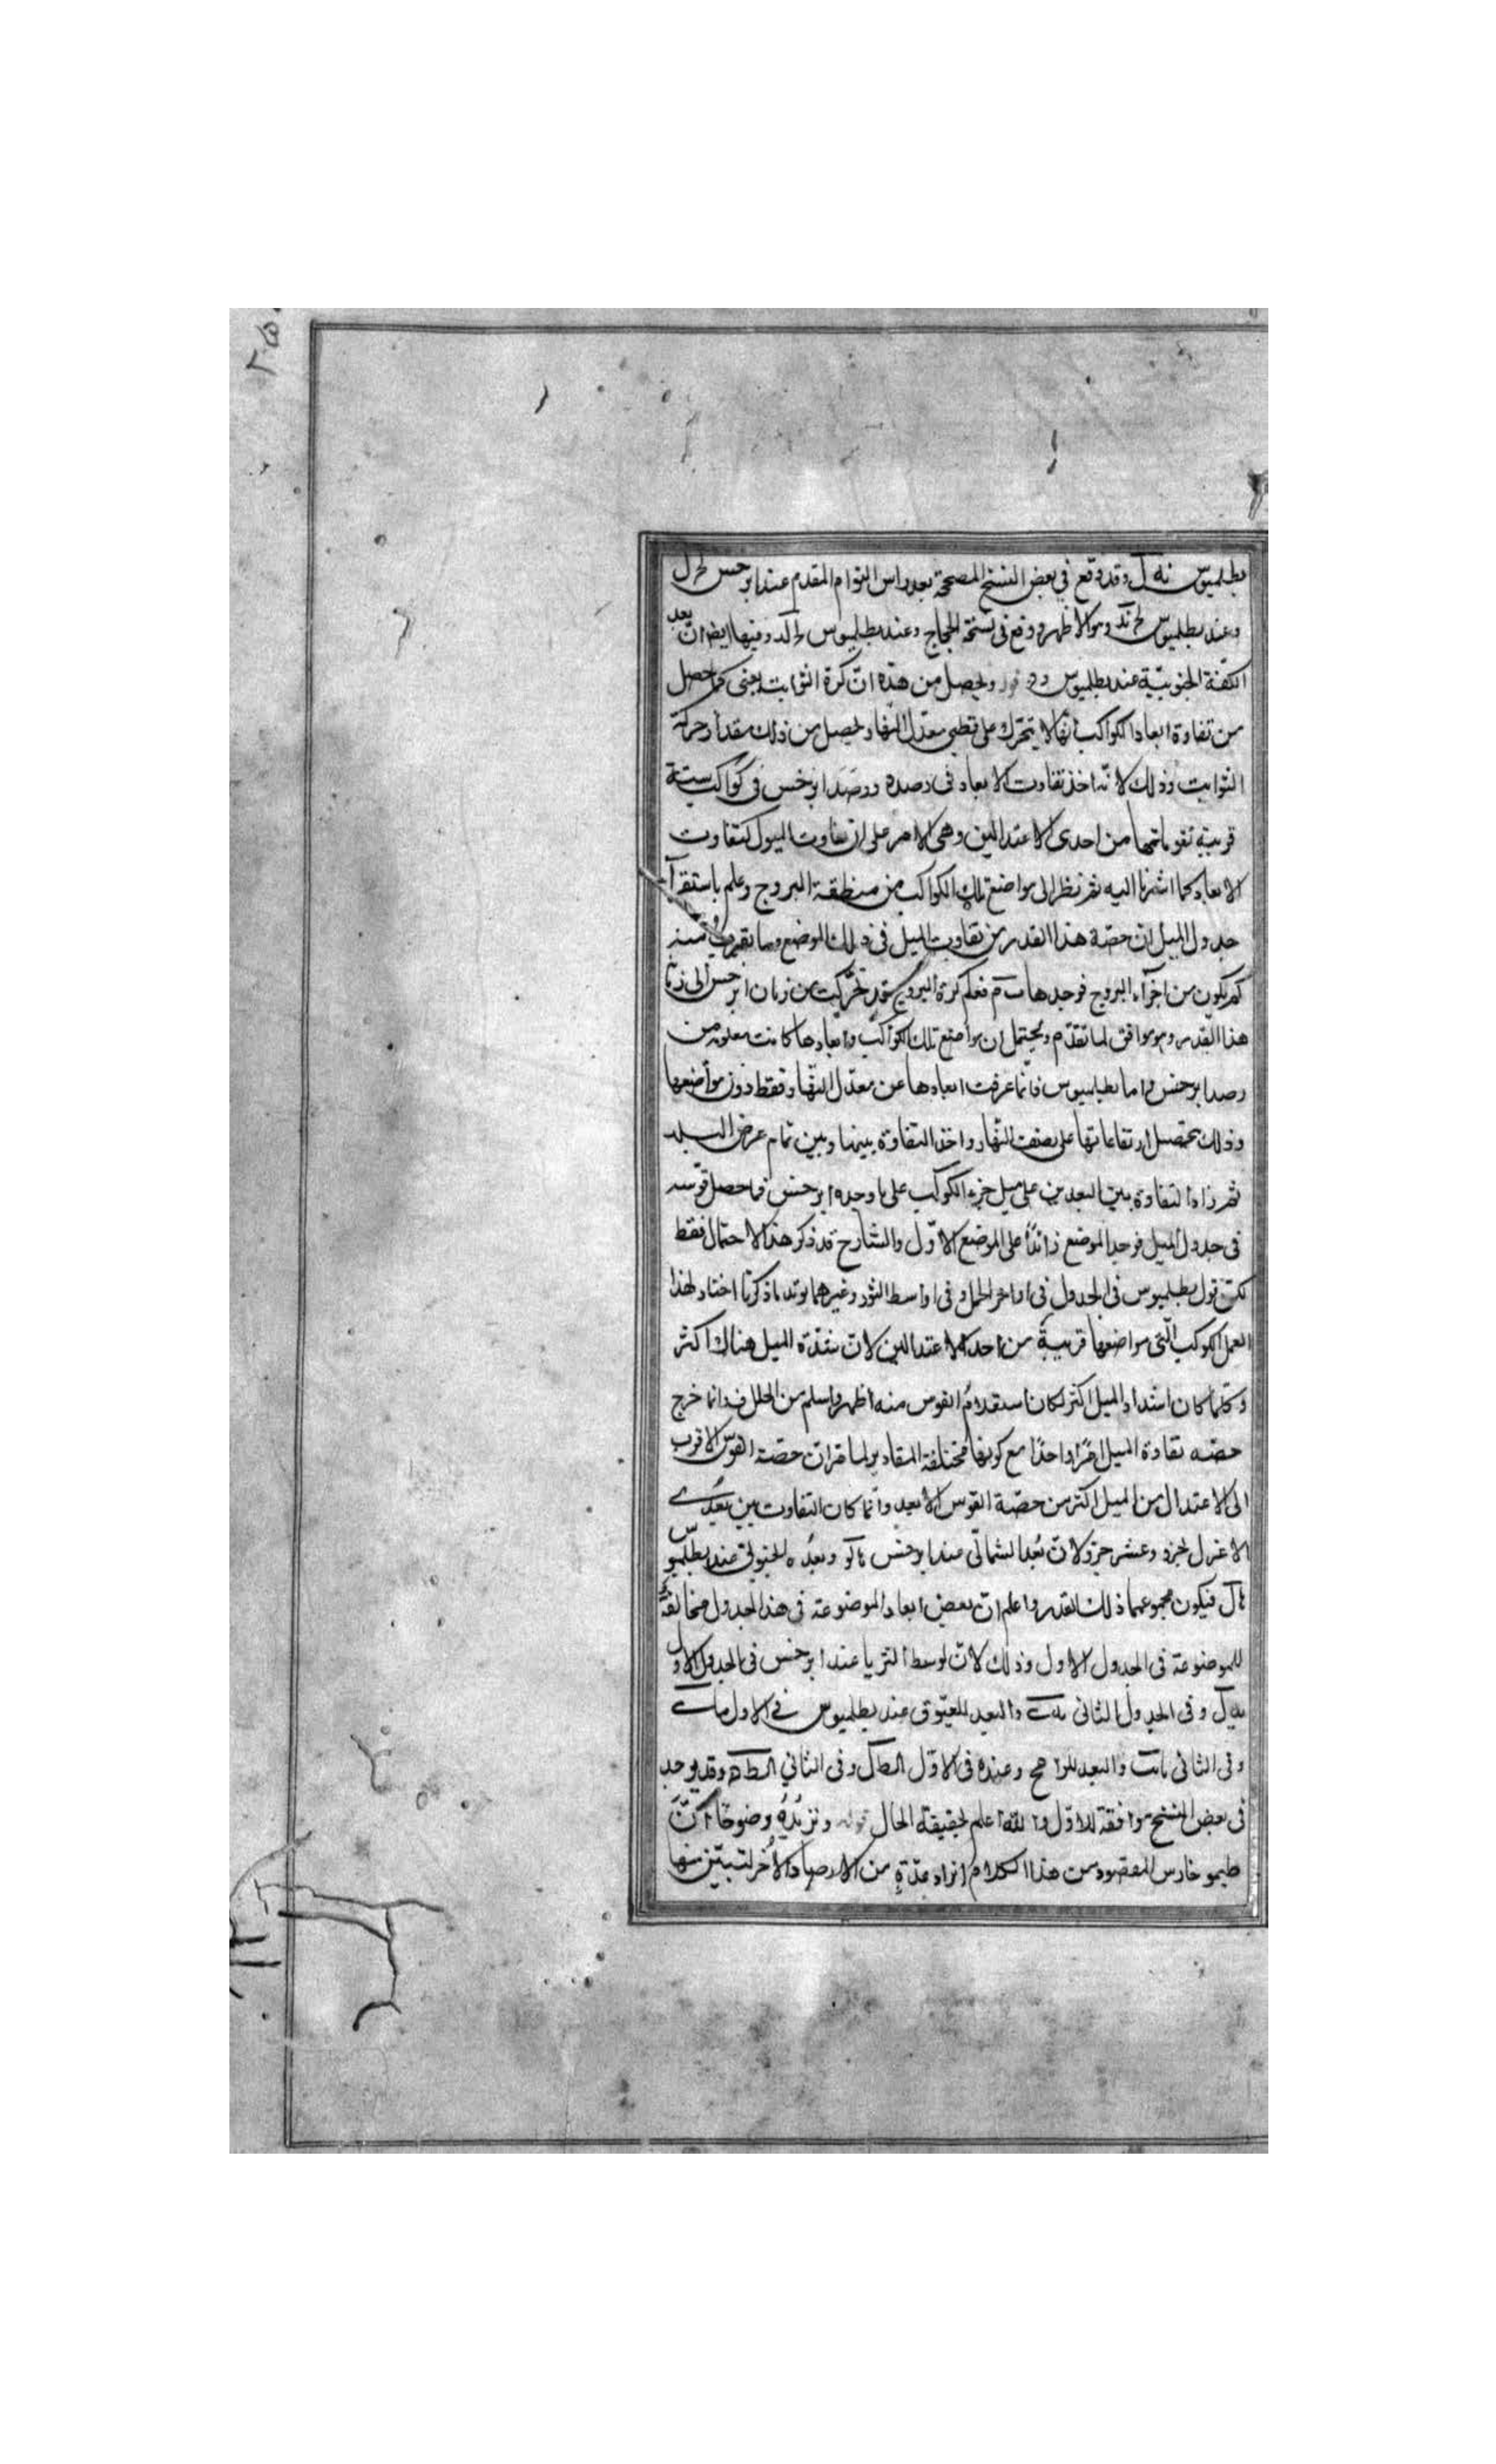 ٢٥٠
بطلميوس نه ل وقد وقع في بعض النسخ المصححة بعد راس التوام المقدم عند ابرخس لح ل
وعند بطلميوس وهو الاظهر ووقع في نسخة الحجاج وعند بطلميوس وفيها ايضا ان بعد
الكفة الجنوبية عند بطلميوس ويحصل من هذه ان كرة الثوابت يعني كما حصل
من تفاوة ابعاد الكواكب انها لا يتحرك على قطبي معدل النهار ويحصل من ذلك مقدار حركة
الثوابت وذلك لانه اخذ تفاوت الابعاد في رصده ورصد ابرخس في كواكب ستة
قريبة تقويماتها من احدى الاعتدالين وهي الامر على ان تفاوت الميول كتفاوت
الابعاد كما اشرنا اليه ثم نظر الى مواضع تلك الكواكب من منطقة البروج وعلم باستقرآ
جدول الميل ان حصة هذا القدر من تفاوت الميل في ذلك الموضع وما يقرب منه
كم يكون من اجزآء البروج فوجدها ب م فعلم كرة البروج قد تحركت من زمان ابرخس الى زما
هذا القدر وهو موافق لما تقدم ويحتمل ان مواضع تلك الكواكب وابعادها كانت معلومة من
رصد ابرخس واما بطلميوس فانما عرفت ابعادها عن معدل النهار فقط دون مواضعها
وذلك بتحصيل ارتفاعاتها على نصف النهار واخذ التفاوة بينها وبين تمام عرض البلد
ثم زاد التفاوة بين البعدين على ميل جزء الكوكب على ما وجده ابرخس فما حصل قوسه
في جدول الميل فوجد الموضع زائدا على الموضع الاول والشارح قد ذكر هذا الاحتمال فقط
لكن قول بطلميوس في الجدول في اواخر الحمل وفي اواسط الثور وغيرهما يؤيد ما ذكرنا اختار لهذا
العمل الكوكب التي مواضعها قريبة من احد الاعتدالين لان شدة الميل هناك اكثر
وكلما كان اشتداد الميل اكثر لكان القوس منه اظهر واسلم من الخلل وانما خرج
حصه تفاوة الميل امرا واحدا مع كونها مختلفة المقادير لما مر ان حصة القوس الاقرب
الى الاعتدال من الميل اكثر من حصة القوس الابعد وانما كان التفاوت بين بعدي
الاعزل لجزء وعشر جزء لان بعد الشمالي عند ابرخس وبعده الجنوبي عند بطلميوس
فيكون مجموعهما ذلك القدر واعلم ان بعض ابعاد الموضوعة في هذا الجدول مخالفة
للموضوعة في الجدول الاول وذلك لان لوسط الثريا عند ابرخس في الجدول الاول
وفي الجدول الثاني والبعد للعيوق عند بطلميوس في الاول
وفي الثاني والبعد للرامح وعنده في الاول وفي الثاني وقد يوجد
في بعض النسخ موافقة للاول والله اعلم بحقيقة الحال قوله ونزيده وضوحا ان
طيموخارس المقصود من هذا الكلام ايراد عدة من الارصاد الاخر لتبيين منها